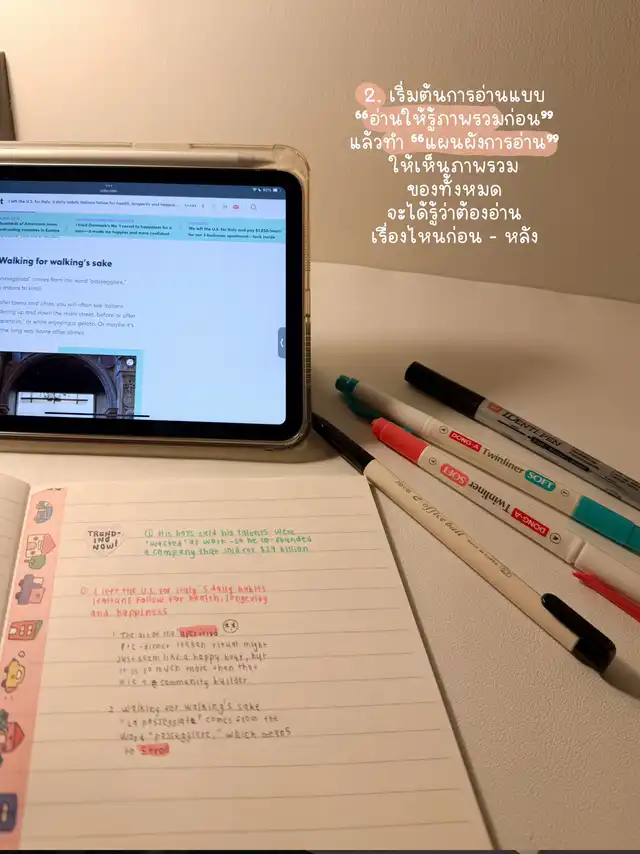 2. เริ่มต้นการอ่านแบบ
“อ่านให้รู้ภาพรวมก่อน”
แล้วทำ “แผนผังการอ่าน”
ให้เห็นภาพรวม
ของทั้งหมด
จะได้รู้ว่าต้องอ่าน
เรื่องไหนก่อน - หลัง
I left the U.S. for Italy. 5 daily habits Italians follow for health, longevity and happine
We left the U.S. and pay $1,850/month
for our 3-bedroom apartment—look inside
Walking for walking's sake
IDENTI PEN
DONG-A Twinliner SOFT
DONG-A Twinliner SOFT
office ball
TREND-
ING
NOW!
① His boss said his talents were
"wasted" at work—so he co-founded
a company that sold for $29 billion
I left the U.S. for Italy 5 daily habits
Italians follow for health, longevity
and happiness
1. The art of the aperitivo
Pre-dinner Italian ritual might
Just seem like a happy hour, but
it is so much more than that
It is a community builder
2. walking for walking's sake
"La passeggiata" comes from the
word "passeggiare," which means
to stroll